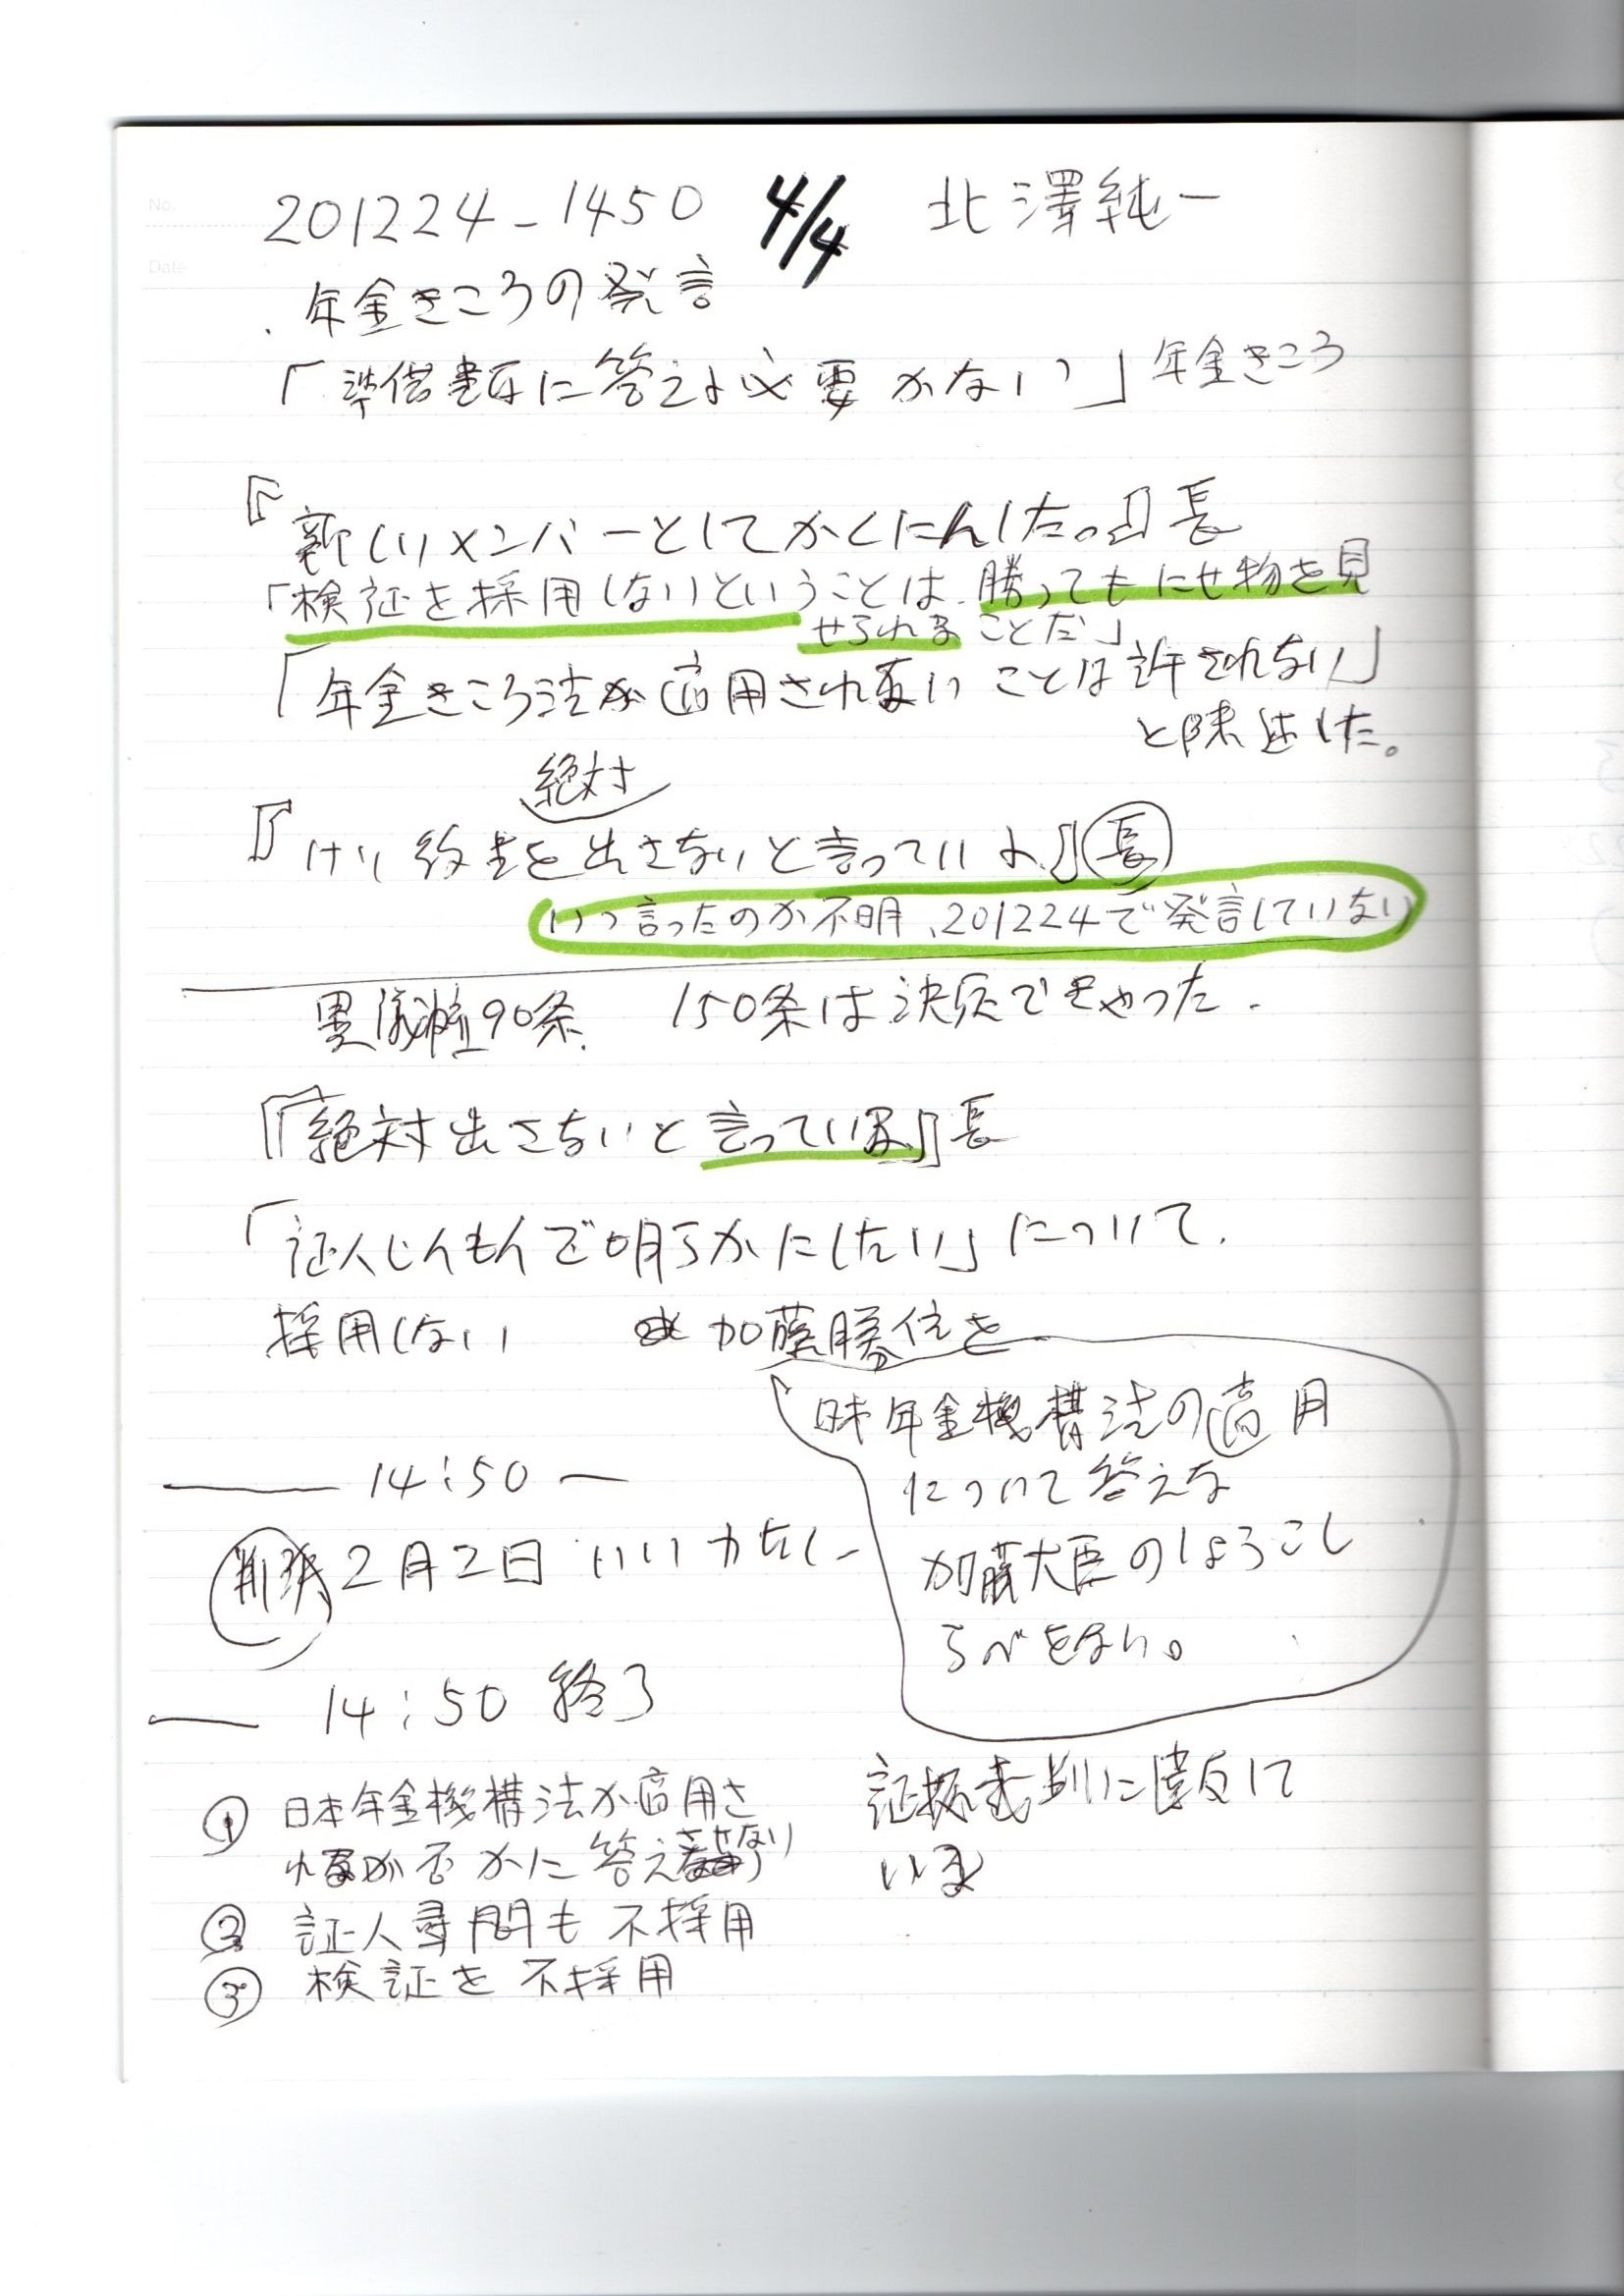 No.
201224-1450 4/4 北澤純一
Date
. 年金きころの発言
「準備書面に答える必要がない」年金きころ
『新しいメンバーとしてかくにんした。』長
「検証を採用しないということは、勝ってもにせ物を見
せられることだ」
「年金きころ法が適用されないことは許されない」
と陳述した。
絶対
『を出さないと言っている』長
いつ言ったのか不明、201224で発言していない
異議 90条. 150条は決定できやった.
『「絶対出さないと言っている』長
「証人じんもんで明らかにしたい」について.
採用しない 加藤勝信を
日本年金機構法の適用
について答えな
加藤大臣のしょうこし
らべをない。
14:50
2月2日
14:50 終了
① 日本年金機構法が適用さ
れるか否かに答えさせない
② 証人尋問も不採用
③ 検証を不採用
証拠裁判に違反して
いる